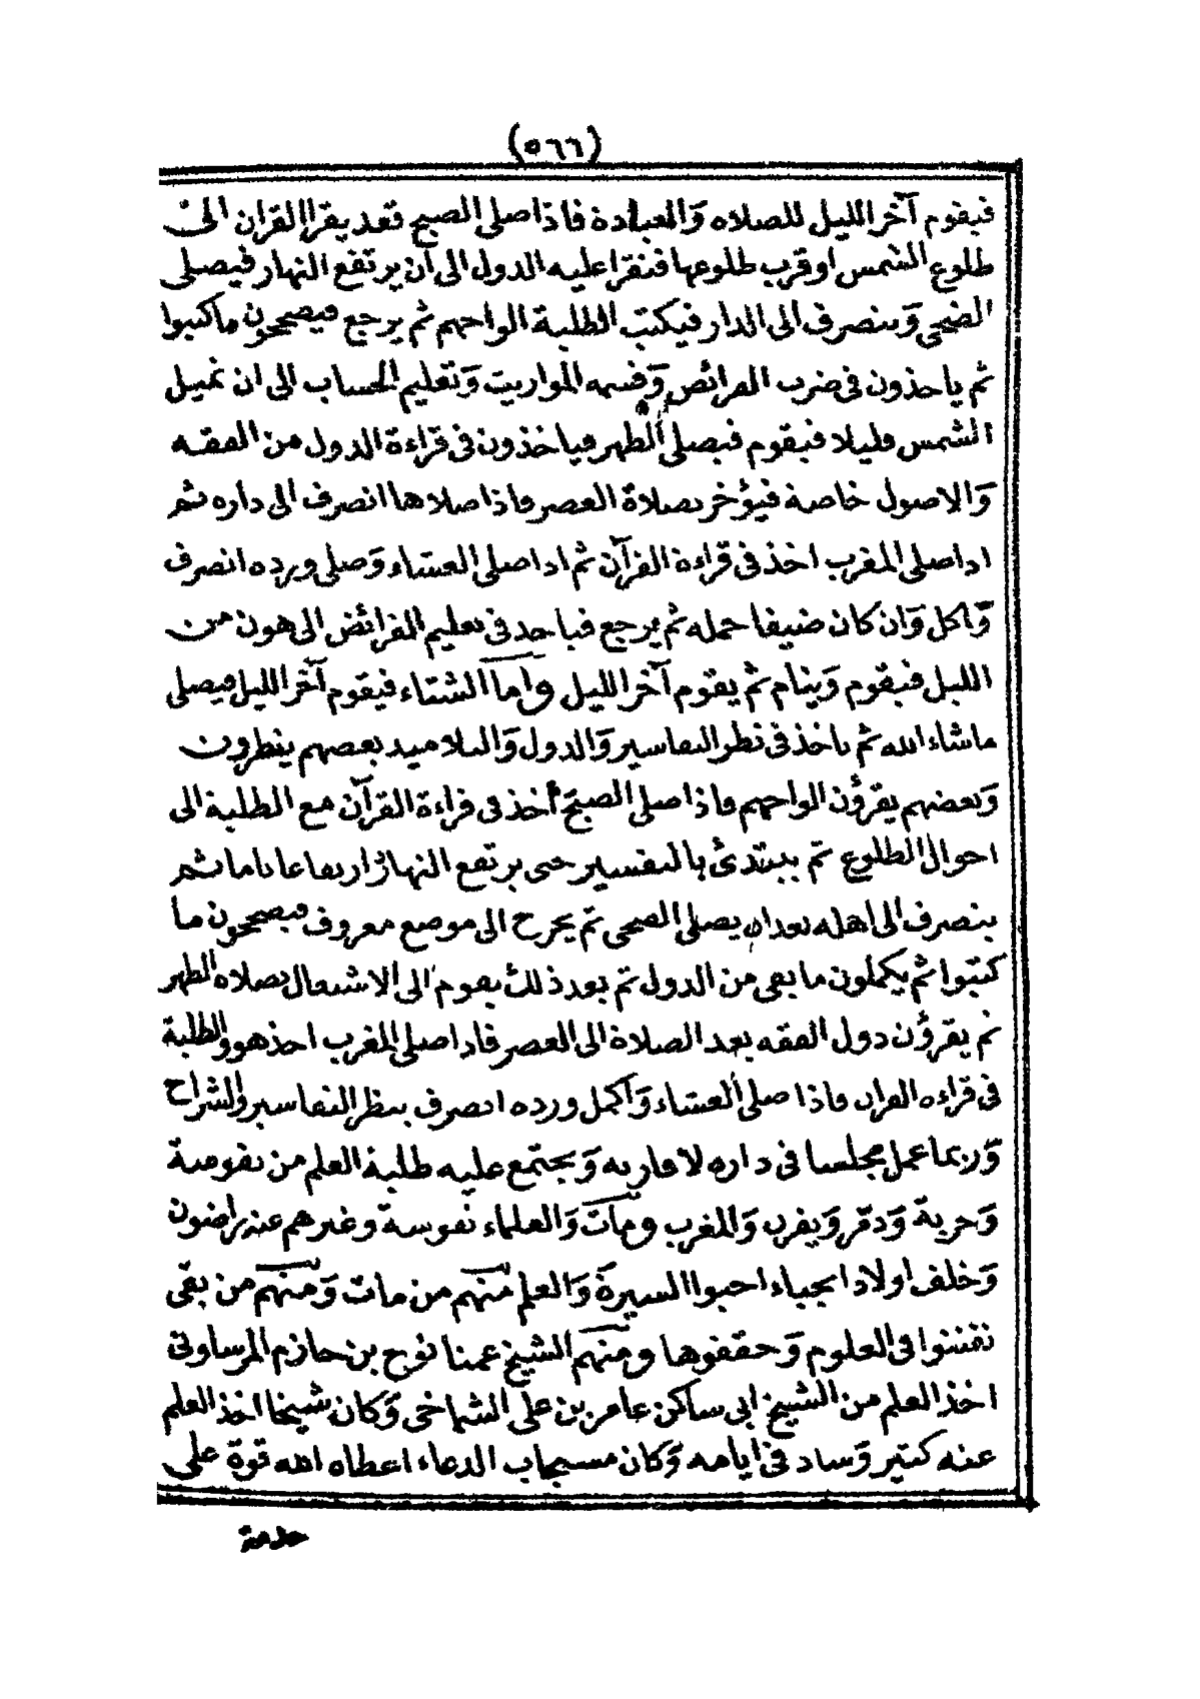 (٥٦٦)
فيقوم آخر الليل للصلاه والعبادة فاذا صلى الصبح قعد يقرا القران الى
طلوع الشمس او قرب طلوعها فتقرا عليه الدول الى ان يرتفع النهار فيصلى
الضحى وينصرف الى الدار فيكتب الطلبة الواحهم ثم يرجع فيصححون ما كتبوا
ثم ياخذون فى ضرب الفرائص وقسمه المواريث وتعليم الحساب الى ان تميل
الشمس قليلا فيقوم فيصلى الظهر فياخذون فى قراءة الدول من الفقه
والاصول خاصة فيؤخر بصلاة العصر فاذا صلاها انصرف الى داره ثم
اذا صلى المغرب اخذ فى قراءة القرآن ثم اذا صلى العشاء وصلى ورده انصرف
واكل وان كان ضيفا حمله ثم يرجع فياخذ فى تعليم الفرائض الى هون من
الليل فيقوم وينام ثم يقوم آخر الليل واما الشتاء فيقوم آخر الليل فيصلى
ما شاء الله ثم ياخذ فى نظر التفاسير والدول والتلاميذ بعضهم ينظرون
وبعضهم يقرؤن الواحهم فاذا صلى الصبح أخذ فى قراءة القرآن مع الطلبة الى
احوال الطلوع ثم يبتدئ بالتفسير حتى يرتفع النهار ارتفاعا تاما ثم
ينصرف الى اهله بعد ان يصلى الضحى ثم يخرج الى موضع معروف فيصححون ما
كتبوا ثم يكملون ما بقى من الدول ثم بعد ذلك يقوم الى الاشتغال بصلاه الظهر
ثم يقرؤن دول الفقه بعد الصلاة الى العصر فاذا صلى المغرب اخذ هو والطلبة
فى قراءه القران فاذا صلى العشاء واكمل ورده انصرف ينظر التفاسير والشراح
وربما عمل مجلسا فى داره لاقاربه ويجتمع عليه طلبة العلم من نفوسة
وجربة ودمر ويفرن والمغرب ومات والعلماء نفوسة وغيرهم عنه راضون
وخلف اولادا نجباء احبوا السيرة والعلم منهم من مات ومنهم من بقى
تفننوا فى العلوم وحققوها ومنهم الشيخ عمنا نوح بن حازم المرساونى
اخذ العلم من الشيخ ابى ساكن عامر بن على الشماخى وكان شيخا اخذ العلم
عنه كثير وساد فى ايامه وكان مستجاب الدعاء اعطاه الله قوة على
خدمة